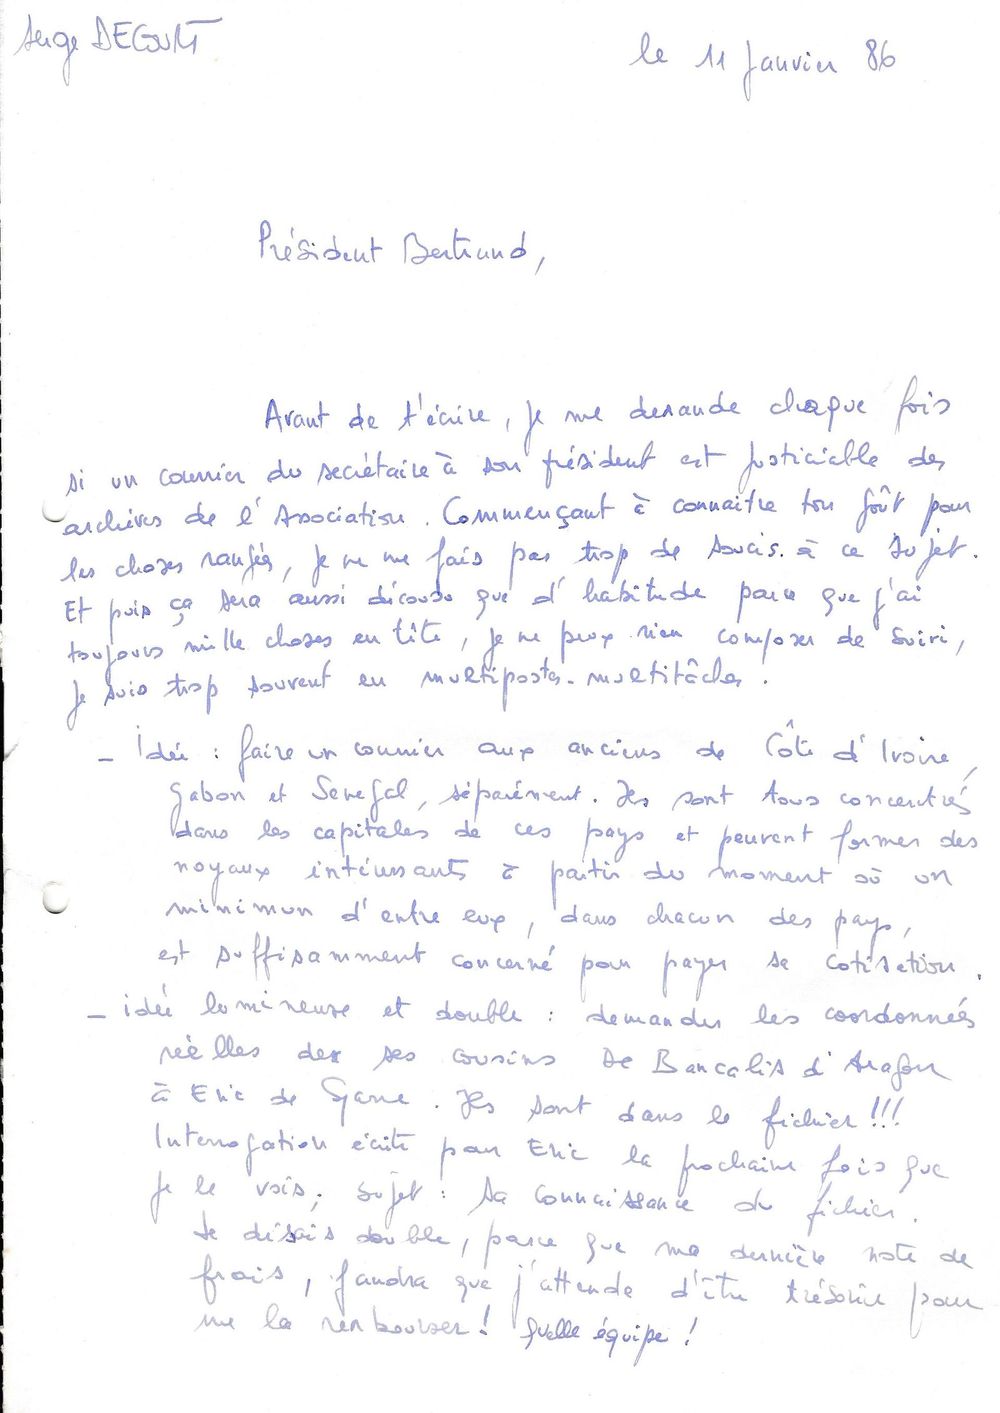 Serge DEGOUT
le 11 Janvier 86
Président Bertrand,
Avant de t'écrire, je me demande chaque fois
si un courrier du secrétaire à son président est justiciable des
archives de l'Association. Commençant à connaitre ton goût pour
les choses rangées, je ne me fais pas trop de soucis à ce sujet.
Et puis ça sera aussi décousu que d'habitude parce que j'ai
toujours mille choses en tête, je ne peux rien composer de suivi,
je suis trop souvent en multipostes-multitâches.
- Idée : faire un courrier aux anciens de Côte d'Ivoire,
Gabon et Senegal, séparément. Ils sont tous concentrés
dans les capitales de ces pays et peuvent former des
noyaux intéressants à partir du moment où un
minimum d'entre eux, dans chacun des pays,
est suffisamment concerné pour payer sa cotisation.
- idée lumineuse et double : demander les coordonnées
réelles de ses cousins de Bancalis d'Aragon
à Eric de . Ils sont dans le fichier !!!
Interrogation écrite pour Eric la prochaine fois que
je le vois, sujet : sa connaissance du fichier.
Je disais double, parce que ma dernière note de
frais, faudra que j'attende d'être trésorier pour
me la rembourser ! Quelle équipe !